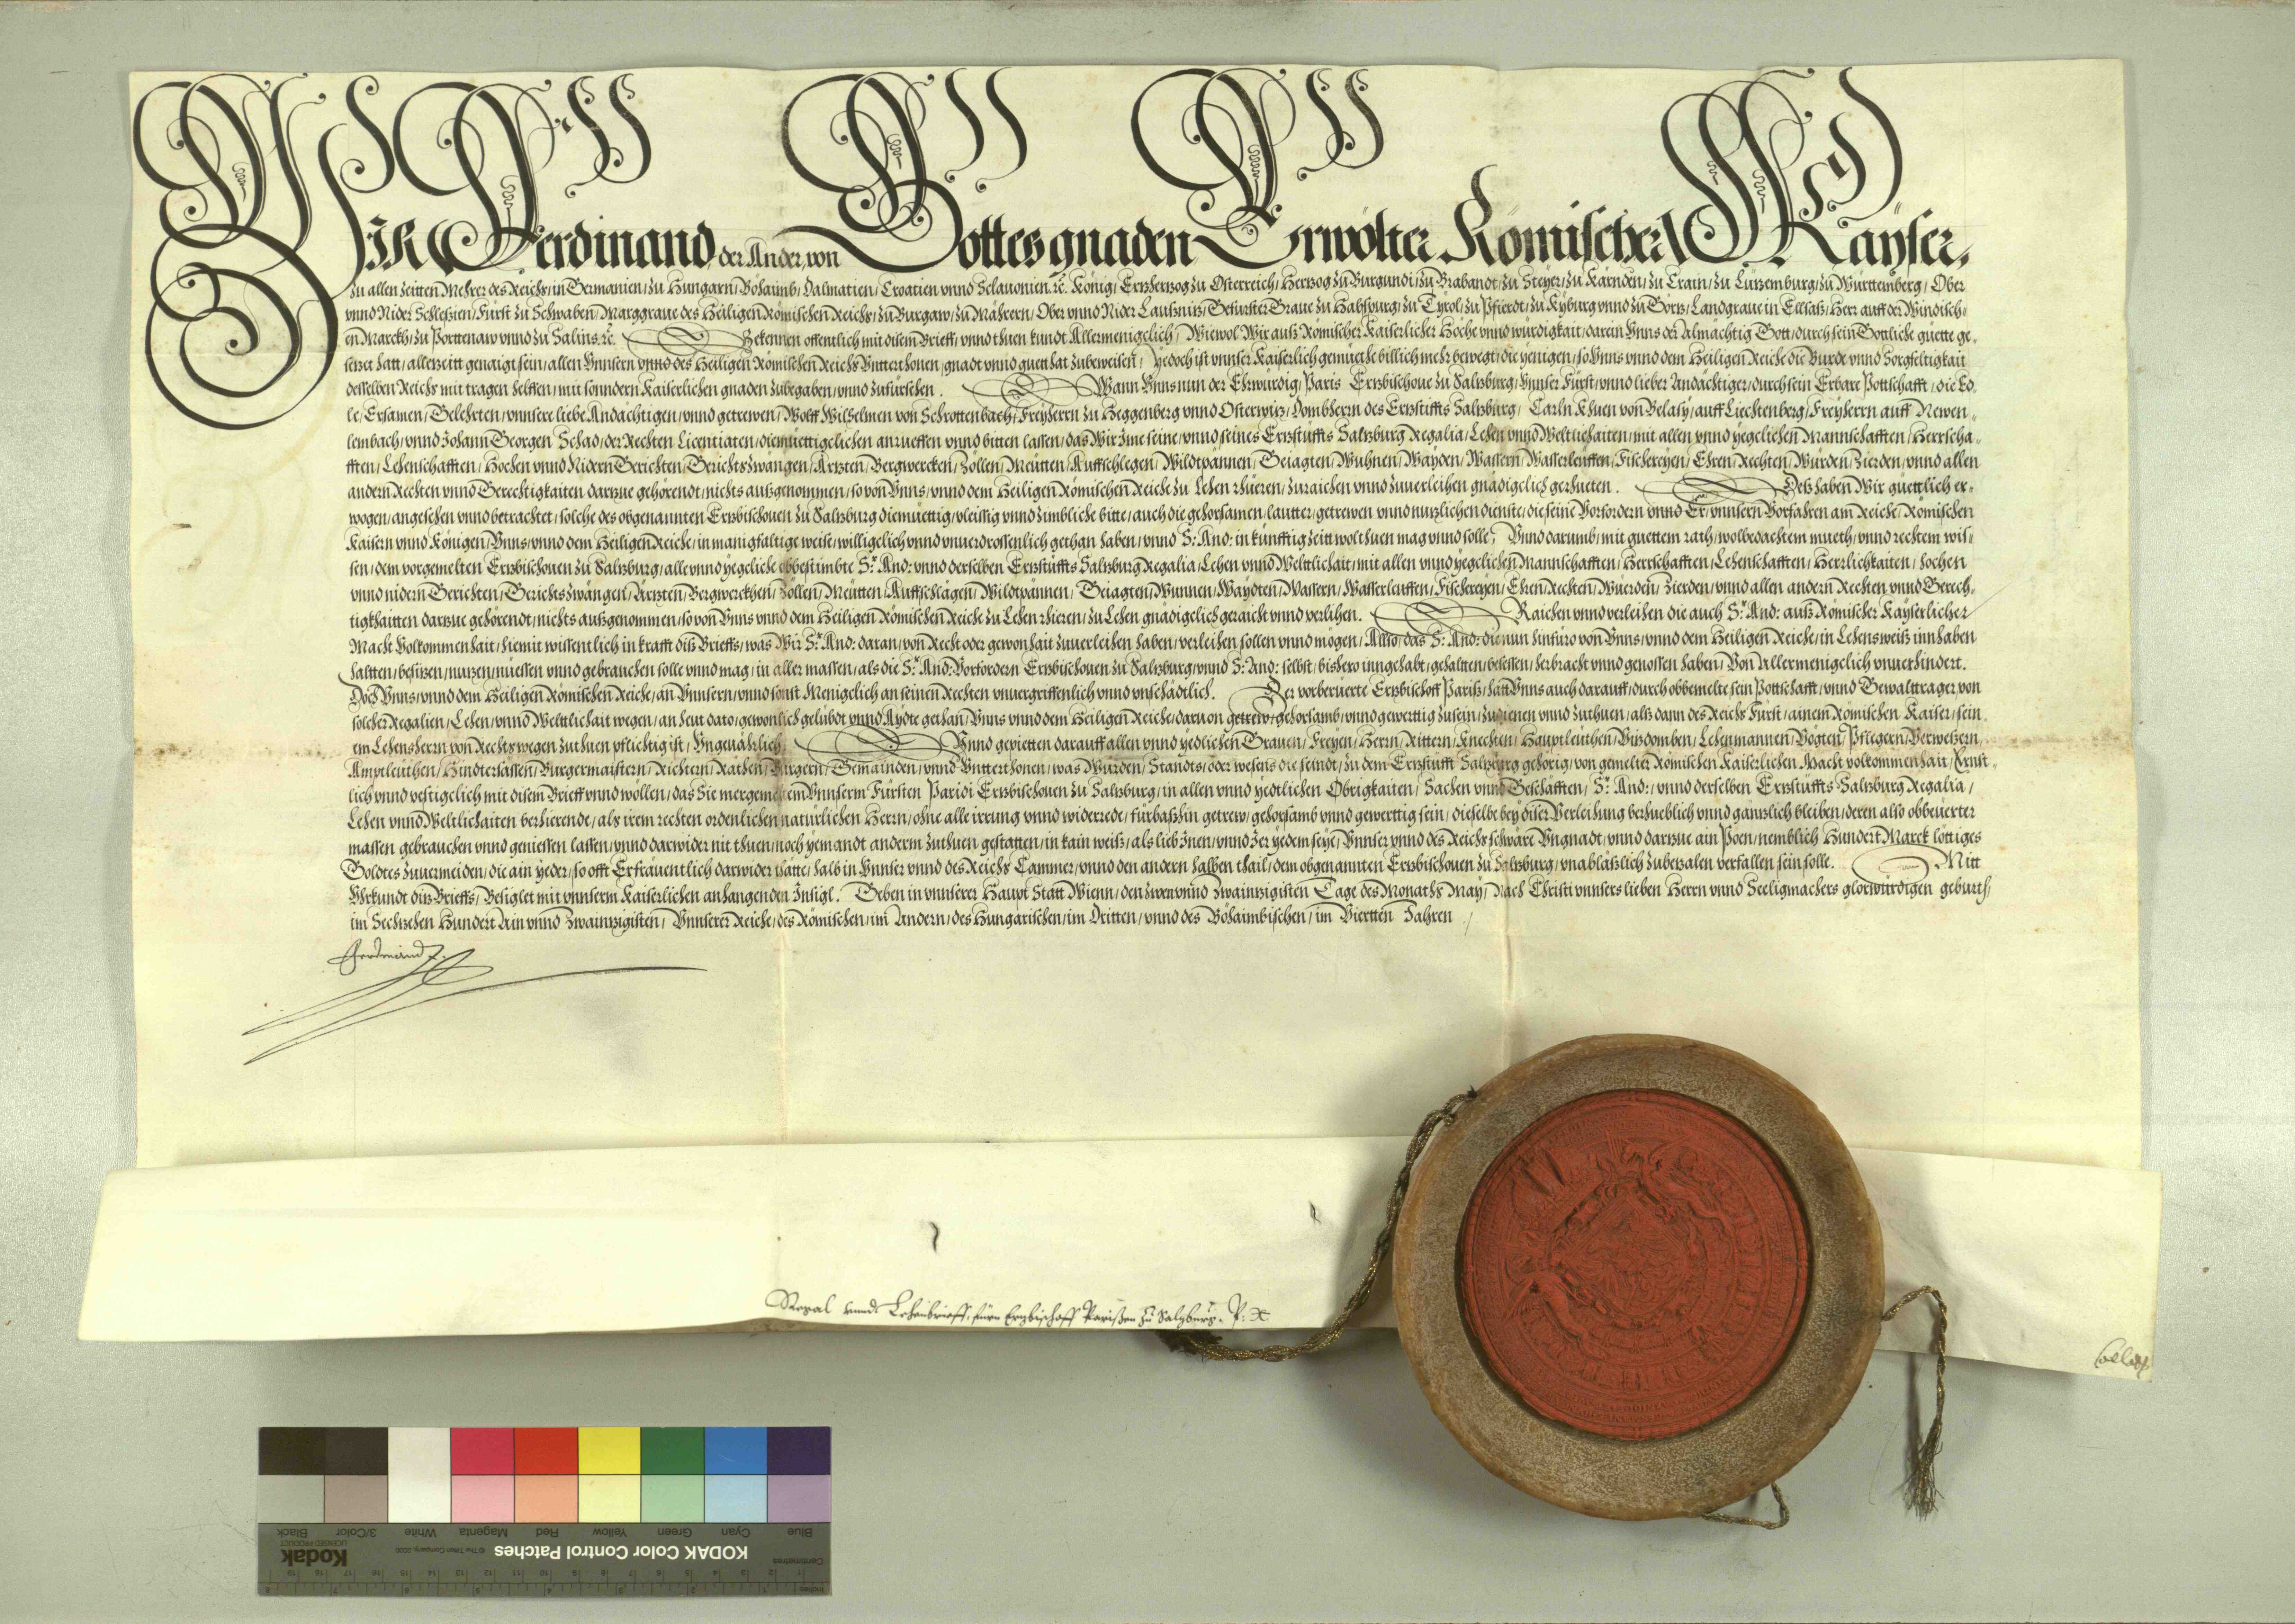 WIR Ferdinand, der Ander, von Gottes gnaden Erwölter Römischer Kayser,
zu allen Zeitten Mehrer des Reichs, in Germanien, zu Hungarn, Böhaimb, Dalmatien, Croatien vnnd Sclauonien ꝛc. König, Ertzhertzog zu Österreich, Hertzog zu Burgundi, zu Brabandt, zu Steyer, zu Kärnden, zu Crain, zu Lützemburg, zu Württemberg, Ober
vnnd Nider Schlesien, Fürst zu Schwaben, Marggraue des Heiligen Römischen Reichs, zu Burgaw, zu Mähren, Ober vnnd Nider Laußnitz, Gefürster Graue zu Habspurg, zu Tyrol, zu Pfierdt, zu Kyburg vnnd zu Görtz, Landgraue in Ellsaß, Herr auff der Windisch-
en Marckh, zu Porttenaw vnnd zu Salins ꝛc. Bekennen offentlich mit disem Brieff, vnnd thuen kundt Allermenigelich, Wiewol Wir auß Römischer Kaiserlicher Höche vnnd würdigkait, darein Vnns der Almächtig Gott, durch sein Göttliche güette ge-
setzet hatt, allerzeitt genaigt sein, allen Vnnsern vnnd des Heiligen Römischen Reichs Vnterthonen, gnadt vnnd guetthat zubeweisen, Yedoch ist vnnser Kaiserlich gemuethe billich mehr bewegt, die yenigen, so Vnns vnnd dem Heiligen Reiche die Burde vnnd Sorgfeltigkait
desselben Reichs mit tragen helffen, mit sonndern Kaiserlichen gnaden zubegaben, vnnd zufürsehen. Wann Vnns nun der Ehrwürdig, Paris Ertzbischoue zu Saltzburg, Vnnser Fürst, vnnd lieber Andächtiger, durch sein Erbare Pottschafft, die Ed-
le, Ersamen, Gelehrten, vnnsere liebe Andächtigen, vnnd getrewen, Wolff Wilhelmen von Schrottenbach, Freyherrn zu Heggenberg vnnd Osterwitz, Dombherrn des Ertzstiffts Saltzburg, Carln Khuen von Belasy, auff Liechtenberg, Freyherrn auff Newen-
lembach, vnnd Johann Georgen Schad, der Rechten Licentiaten, diemüettigelichen anrueffen vnnd bitten lassen, das Wir Ime seine, vnnd seines Ertzstüffts Saltzburg Regalia, Lehen vnnd Weltlichaiten, mit allen vnnd yegelichen Mannschafften, Herrscha-
fften, Lehenschafften, Hochen vnnd Nidern Gerichten, Gerichtszwängen, Ärtzten, Bergwercken, Zöllen, Meütten, Auffschlegen, Wildtpännen, Geiagten, Wuhnen, Wayden, Wassern, Wasserleuffen, Fischereyen, Ehren, Rechten, Würden, Zierden, vnnd allen
andern Rechten vnnd Gerechtigkaiten darzue gehörendt, nichts außgenommen, so von Vnns, vnnd dem Heiligen Römischen Reiche zu Lehen rhüeren, zuraichen vnnd zuuerleihen gnädigelich gerhueten. Deß haben Wir güettlich er-
wogen, angesehen vnnd betrachtet, solche des obgenannten Ertzbischouen zu Saltzburg diemüettig, vleissig vnnd zimbliche bitte, auch die gehorsamen, lautter, getrewen vnnd nutzlichen dienste, die seine Vorfordern vnnd Er, vnnsern Vorfahren am Reiche, Römischen
Kaisern vnnd Königen, Vnns, vnnd dem Heiligen Reiche, in manigfaltige weise, willigelich vnnd vnuerdrossenlich gethan haben, vnnd Sr. And: in künfftig zeitt wol thuen mag vnnd solle, Vnnd darumb, mit guettem rath, wolbedachtem mueth, vnnd rechtem wis-
sen, dem vorgemelten Ertzbischouen zu Saltzburg, alle vnnd yegeliche obbestimbte Sr. And: vnnd derselben Ertzstüffts Saltzburg Regalia, Lehen vnnd Weltlichait, mit allen vnnd yegelichen Mannschafften, Herrschafften, Lehenschafften, Herrlichkaiten, hochen
vnnd nidern Gerichten, Gerichtszwängen, Ärtzten, Bergwerckhen, Zöllen, Meütten, Auffschlägen, Wildtpännen, Geiagten, Wunnen, Waydten, Wassern, Wasserleuffen, Fischereyen, Ehren, Rechten, Wuerden, Zierden, vnnd allen andern Rechten vnnd Gerech-
tigkhaitten darzue gehörendt, nichts außgenommen, so von Vnns vnnd dem Heiligen Römischen Reiche zu Lehen rhüeren, zu Lehen gnädigelich geraicht vnnd verlihen. Raichen vnnd verleihen die auch Sr. And: auß Römischer Kayserlicher
Macht Volkommenhait, hiemit wissentlich in krafft diß Brieffs, was Wir Sr. And: daran, von Recht oder gewonhait zuuerleihen haben, verleihen sollen vnnd mögen, Allso, das Sr. And: die nun hinfüro von Vnns, vnnd dem Heiligen Reiche, in Lehensweiß innhaben
haltten, besitzen, nutzen, niessen vnnd gebrauchen solle vnnd mag, in aller massen, als die Sr. And: Vorfordern Ertzbischouen zu Saltzburg, vnnd Sr. And: selbst, bishero inngehabt, gehaltten, besessen, herbracht vnnd genossen haben, Von Allermenigelich vnuerhindert.
Doch Vnns, vnnd dem Heiligen Römischen Reiche, an Vnnsern, vnnd sonst Menigelich an seinen Rechten vnuergriffenlich vnnd vnschädtlich. Der vorberuerte Ertzbischoff Pariß, hatt Vnns auch darauff, durch obbemelte sein Pottschafft, vnnd Gewalttrager, von
solcher Regalien, Lehen, vnnd Welttlichait wegen, an heut dato, gewonlich gelübdt vnnd Aydte gethan, Vnns vnnd dem Heiligen Reiche, daruon getrew, gehorsamb, vnnd gewerttig zusein, zudienen vnnd zuthuen, alß dann des Reichs Fürst, ainem Römischen Kaiser, sein-
em Lehensherrn von Rechts wegen zuthuen pflichtig ist, Vngeuährlich. Vnnd gepietten darauff allen vnnd yedlichen Grauen, Freyen, Herrn, Rittern, Knechten, Hauptleuthen, Vitzdomben, Lehenmannen, Vögten, Pflegern, Verwesern,
Amptleuthen, Hindtersassen, Burgermaistern, Richtern, Räthen, Burgern, Gemainden, vnnd Vntterthonen, was Wurden, Standts, oder wesens die seindt, zu dem Ertzstüfft Saltzburg gehörig, von gemelter Römischen Kaiserlichen Macht volkommenhait, Ernst-
lich vnnd vestigelich mit disem Brieff vnnd wöllen, das Sie mergemeltem Vnnserm Fürsten Paridi Ertzbischouen zu Saltzburg, in allen vnnd yedtlichen Obrigkaiten, Sachen vnnd Geschäfften, Sr. And:, vnnd derselben Ertzstüffts Saltzburg Regalia,
Lehen vnnd Weltlichaiten berhüerende, als irem rechten ordenlichen natürlichen Herrn, ohne alle irrung vnnd widerrede, fürbaßhin getrew, gehorsamb vnnd gewerttig sein, dieselbe bey diser Verleihung berhueblich vnnd gäntzlich bleiben, deren also obberuerter
massen gebrauchen vnnd geniessen lassen, vnnd darwider nit thuen, noch yemandt anderm zuthuen gestatten, in kain weiß, als lieb Inen, vnnd Ir yedem seye, Vnnser vnnd des Reichs schwäre Vngnadt, vnnd darzue ain Poen, nemblich Hundert Marck löttiges
Goldtes zuuermeiden, die ain yeder, so offt Er fräuentlich darwider thätte, halb in Vnnser vnnd des Reichs Cammer, vnnd den andern halben thail, dem obgenannten Ertzbischouen zu Saltzburg, vnabläßlich zubezalen verfallen sein solle. Mitt
Vrkundt diß Brieffs, Besiglet mit vnnserm Kaiserlichen anhangenden Insigl. Geben in vnnserer Haupt Statt Wienn, den zwen vnnd zwaintzigisten Tage des Monaths May, Nach Christi vnnsers lieben Herrn vnnd Seeligmachers glorwürdigen geburth,
im Sechzehen Hundert Ain vnnd Zwaintzigisten, Vnnserer Reiche, des Römischen, im Andern, des Hungarischen, im Dritten, vnnd des Böhaimbischen, im Viertten Jahren.
Ferdinand
Regal vnnd Lehenbrieff, fürn Ertzbischoff Parißen zu Saltzburg.
KODAK Color Control Patches
© The Tiffen Company, 2000
Kodak
LICENSED PRODUCT
Black 3/Color White Magenta Red Yellow Green Cyan Blue
Centimetres
Inches